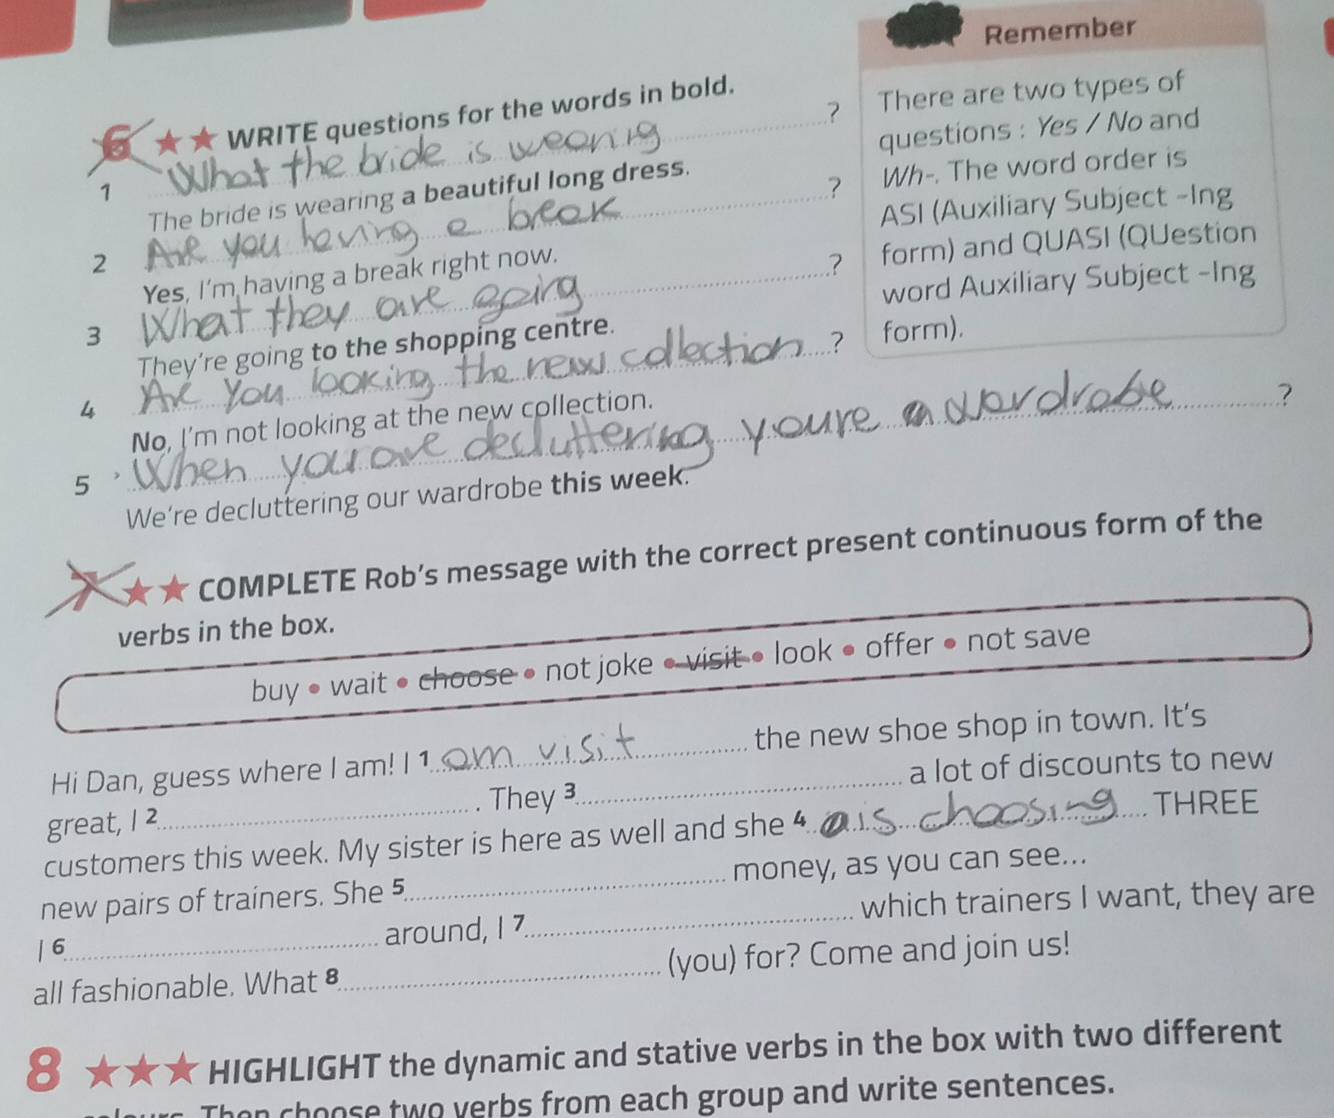 Remember
There are two types of
questions : Yes / No and
Wh-. The word order is
ASI (Auxiliary Subject -Ing
form) and QUASI (QUestion
word Auxiliary Subject -Ing
form).
6 ★★ WRITE questions for the words in bold.
1 What the bride is wearing ?
The bride is wearing a beautiful long dress.
2 Are you having a break ?
Yes, I'm having a break right now.
3 What they are going ?
They're going to the shopping centre.
4 Are you looking the new collection ?
No, I'm not looking at the new collection.
5 When you are decluttering youre wardrobe ?
We're decluttering our wardrobe this week.
7 ★★ COMPLETE Rob's message with the correct present continuous form of the
verbs in the box.
buy • wait • choose • not joke • visit • look • offer • not save
Hi Dan, guess where I am! I 1 am visit the new shoe shop in town. It's
great, I 2 . They 3 a lot of discounts to new
customers this week. My sister is here as well and she 4 is choosing THREE
new pairs of trainers. She 5 money, as you can see...
I 6 around, I 7 which trainers I want, they are
all fashionable. What 8 (you) for? Come and join us!
8 ★★★ HIGHLIGHT the dynamic and stative verbs in the box with two different
Then choose two verbs from each group and write sentences.